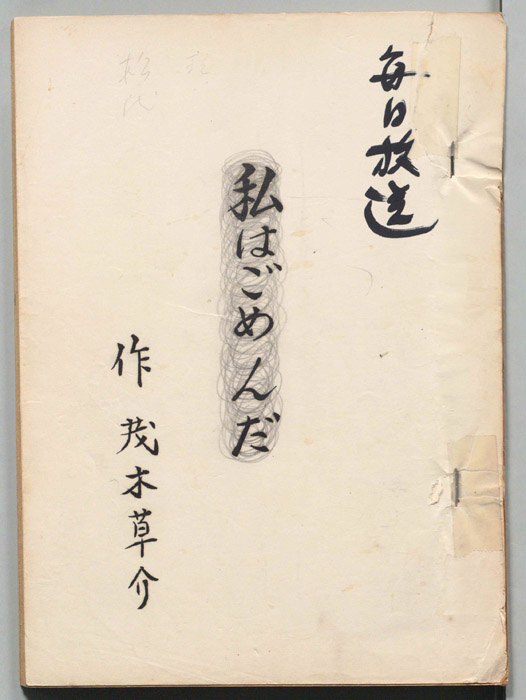 毎日放送
私はごめんだ
作 茂木草介